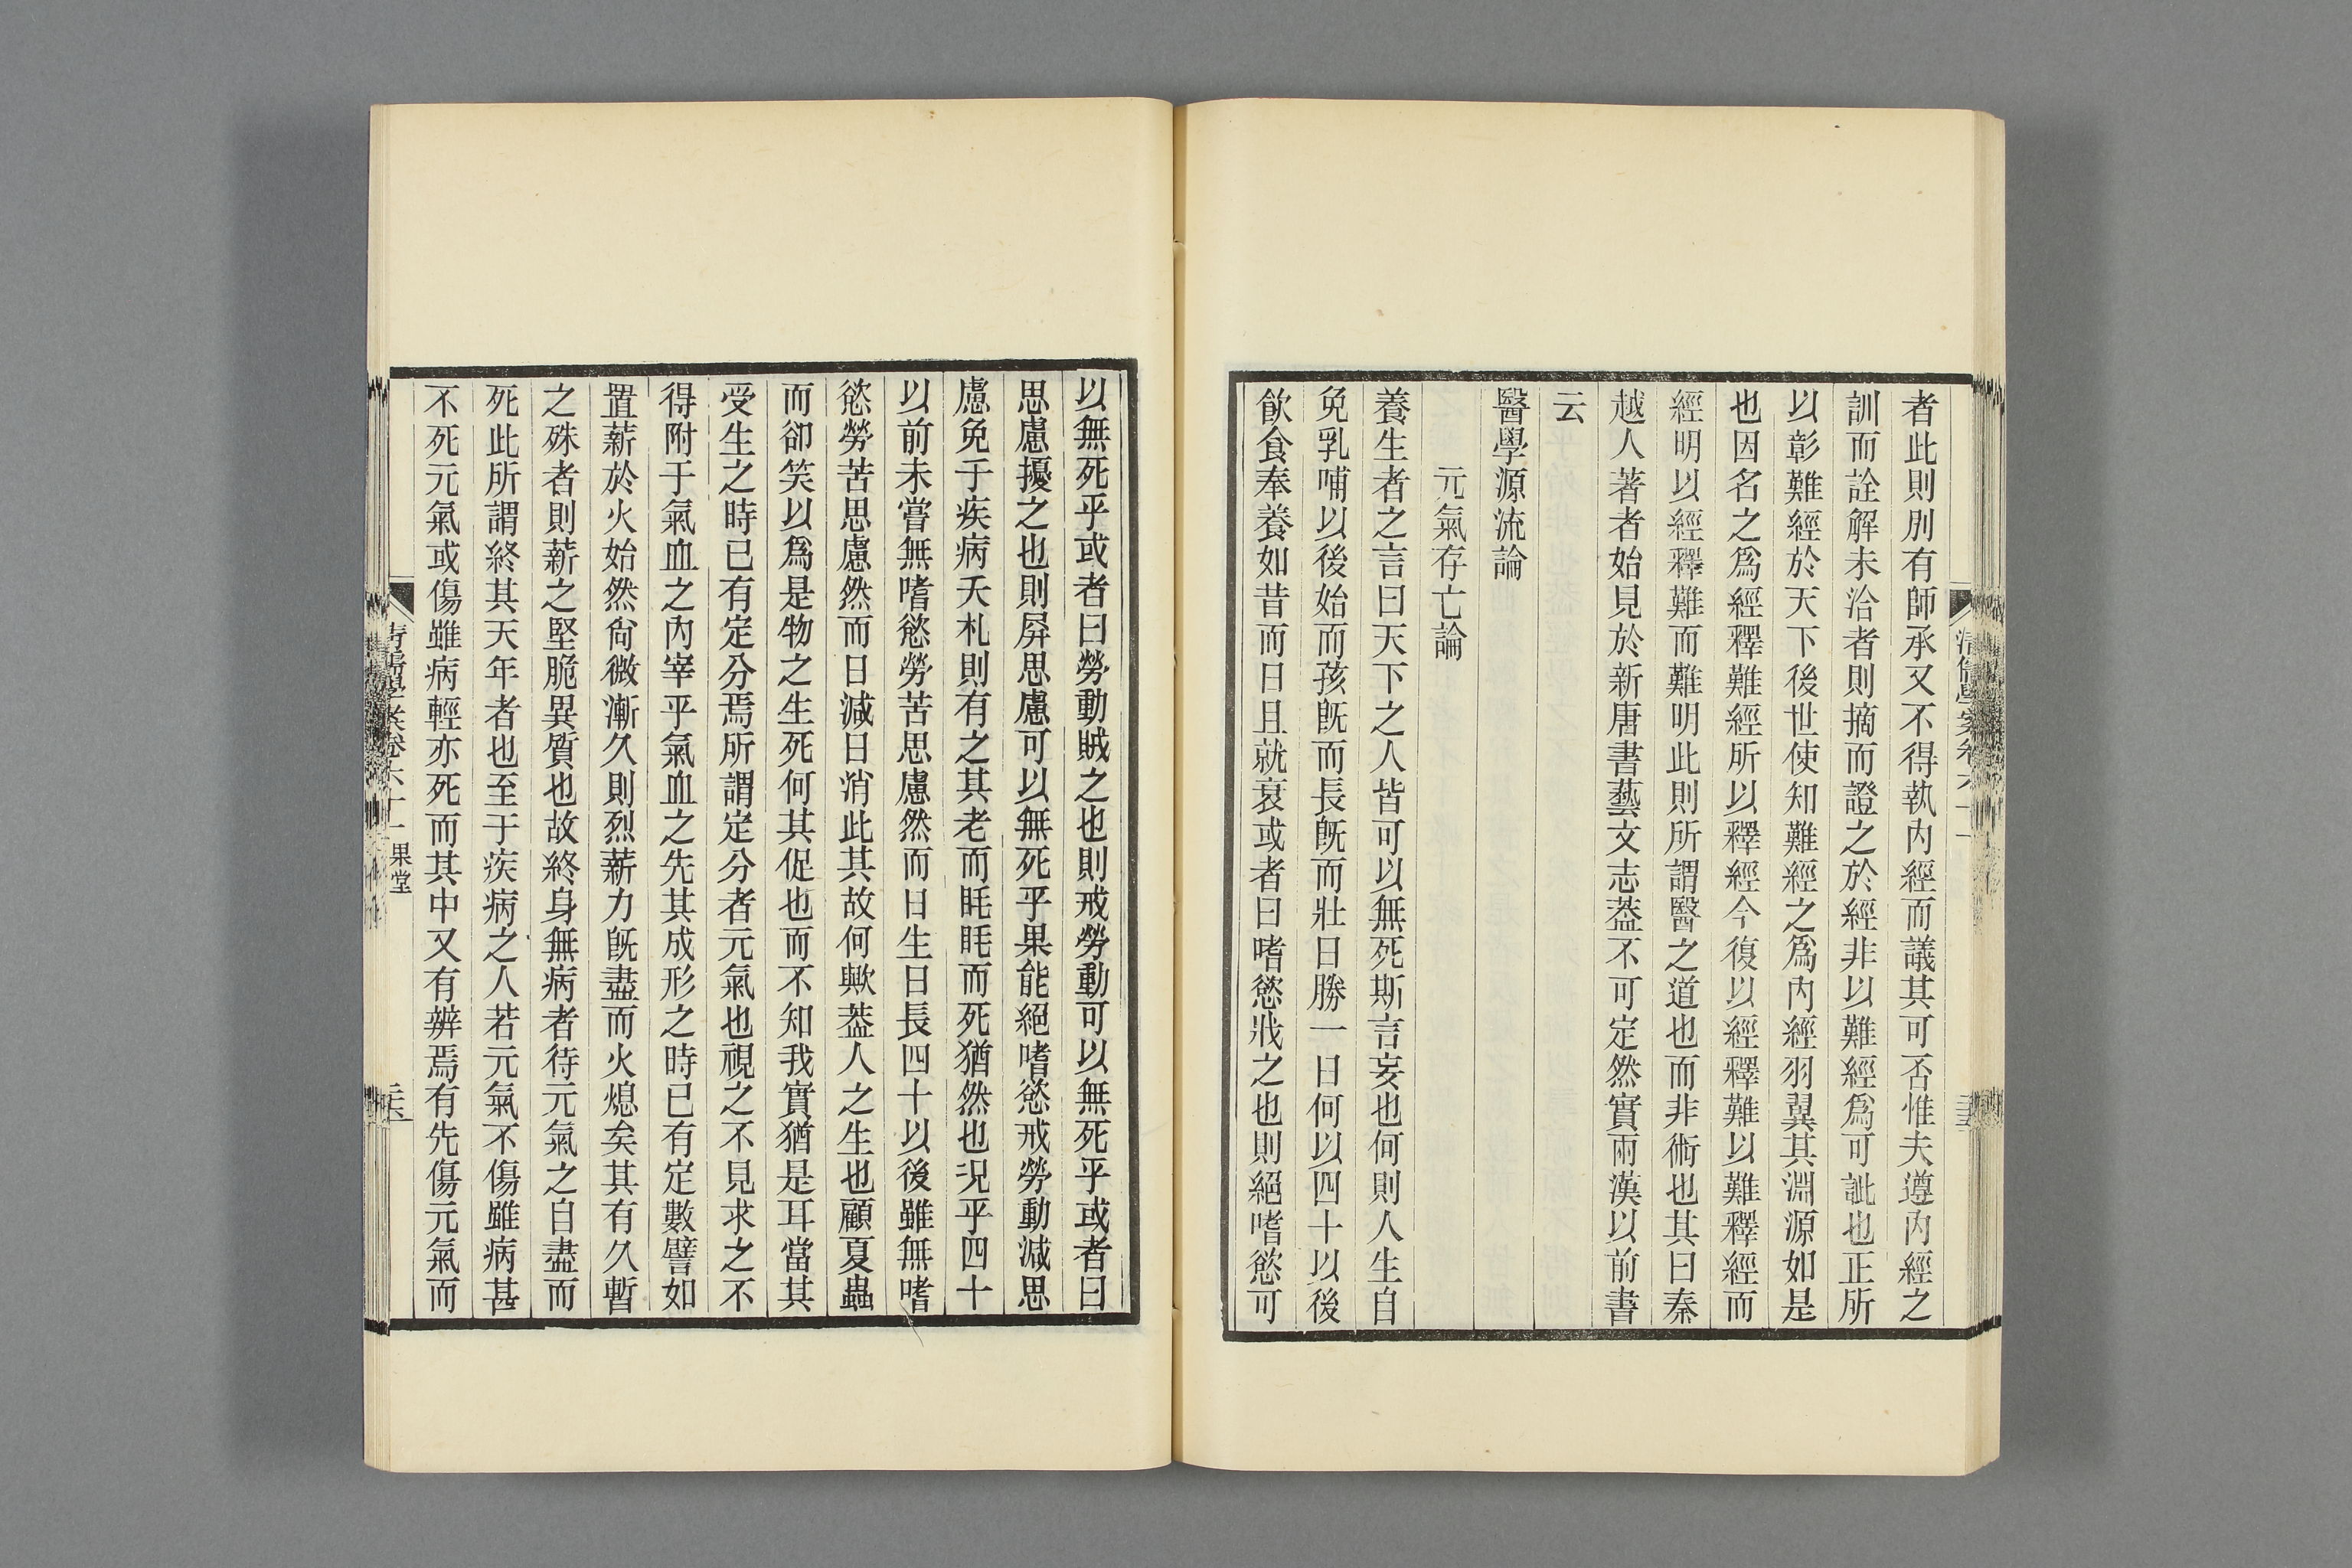 者此則別有師承又不得執內經而議其可否惟夫遵內經之
訓而詮解未洽者則摘而證之於經非以難經爲可訿也正所
以彰難經於天下後世使知難經之爲內經羽翼其淵源如是
也因名之爲經釋難經所以釋經今復以經釋難以難釋經而
經明以經釋難而難明此則所謂醫之道也而非術也其曰秦
越人著者始見於新唐書藝文志葢不可定然實兩漢以前書
云
醫學源流論
元氣存亡論
養生者之言曰天下之人皆可以無死斯言妄也何則人生自
免乳哺以後始而孩旣而長旣而壯日勝一日何以四十以後
飮食奉養如昔而日且就衰或者曰嗜慾戕之也則絕嗜慾可
以無死乎或者曰勞動賊之也則戒勞動可以無死乎或者曰
思慮擾之也則屛思慮可以無死乎果能絕嗜慾戒勞動減思
慮免于疾病夭札則有之其老而眊眊而死猶然也況乎四十
以前未嘗無嗜慾勞苦思慮然而日生日長四十以後雖無嗜
慾勞苦思慮然而日減日消此其故何歟葢人之生也顧夏蟲
而卻笑以爲是物之生死何其促也而不知我實猶是耳當其
受生之時已有定分焉所謂定分者元氣也視之不見求之不
得附于氣血之內宰乎氣血之先其成形之時已有定數譬如
置薪於火始然尙微漸久則烈薪力旣盡而火熄矣其有久暫
之殊者則薪之堅脆異質也故終身無病者待元氣之自盡而
死此所謂終其天年者也至于疾病之人若元氣不傷雖病甚
不死元氣或傷雖病輕亦死而其中又有辨焉有先傷元氣而
清儒學案卷六十一 果堂